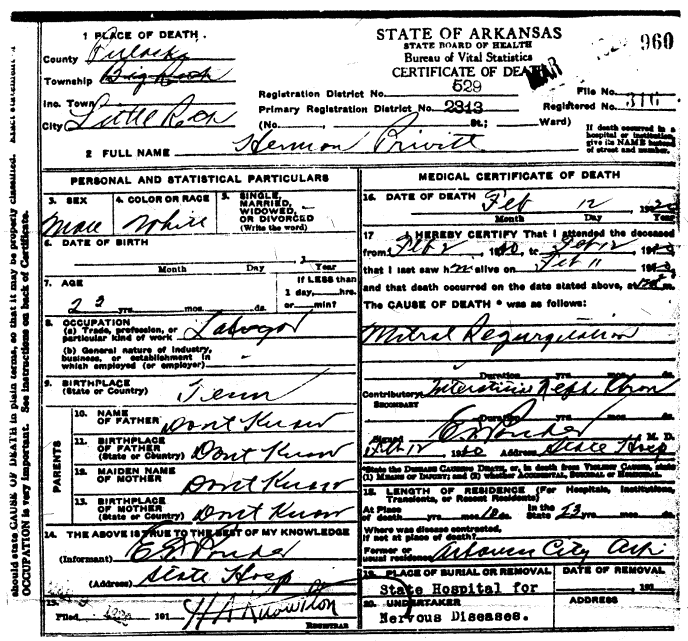 1 PLACE OF DEATH.
County Pulaski
Township Big Rock
Inc. Town
City Little Rock
STATE OF ARKANSAS
STATE BOARD OF HEALTH
Bureau of Vital Statistics
CERTIFICATE OF DEATH
MAR
960
529
Registration District No.
File No.
Primary Registration District No. 2313
Registered No. 316
(No. St.; Ward)
If death occurred in a hospital or institution, give its NAME instead of street and number.
2 FULL NAME Hermon Privitt
PERSONAL AND STATISTICAL PARTICULARS
3. SEX
Male
4. COLOR OR RACE
White
5. SINGLE, MARRIED, WIDOWED, OR DIVORCED (Write the word)
6. DATE OF BIRTH
Month Day Year
7. AGE
If LESS than
1 day, hrs.
or min?
23 yrs. mos. ds.
8. OCCUPATION
(a) Trade, profession, or
particular kind of work Laborer
(b) General nature of industry,
business, or establishment in
which employed (or employer)
9. BIRTHPLACE
(State or Country) Tenn
PARENTS
10. NAME OF FATHER Dont Know
11. BIRTHPLACE OF FATHER (State or Country) Dont Know
12. MAIDEN NAME OF MOTHER Dont Know
13. BIRTHPLACE OF MOTHER (State or Country) Dont Know
14. THE ABOVE IS TRUE TO THE BEST OF MY KNOWLEDGE
(Informant) E E Ponder
(Address) State Hosp
15.
Filed 191 H A Knowlton
REGISTRAR
MEDICAL CERTIFICATE OF DEATH
16. DATE OF DEATH Feb 12, 1920
Month Day Year
17 I HEREBY CERTIFY That I attended the deceased
from Feb 2 1920, to Feb 12 1920
that I last saw him alive on Feb 11 1920,
and that death occurred on the date stated above, at m.
The CAUSE OF DEATH * was as follows:
Mitral Regurgitation
Duration yrs. mos. ds.
Contributory Interstitial Neph Chron
SECONDARY
Duration yrs. mos. ds.
Signed E E Ponder M. D.
Feb 12 1920 Address State Hosp
*State the DISEASE CAUSING DEATH, or, in death from VIOLENT CAUSES, state
(1) MEANS OF INJURY; and (2) whether ACCIDENTAL, SUICIDAL or HOMICIDAL.
18. LENGTH OF RESIDENCE (For Hospitals, Institutions,
Transients, or Recent Residents)
At Place of death yrs. mos. 10 ds. In the State 23 yrs. mos. ds.
Where was disease contracted,
if not at place of death?
Former or
usual residence Arkansas City Ark
19. PLACE OF BURIAL OR REMOVAL
State Hospital for
DATE OF REMOVAL
191
20. UNDERTAKER
Nervous Diseases.
ADDRESS
should state CAUSE OF DEATH in plain terms, so that it may be properly classified. Exact statement
OCCUPATION is very important. See instructions on back of Certificate.